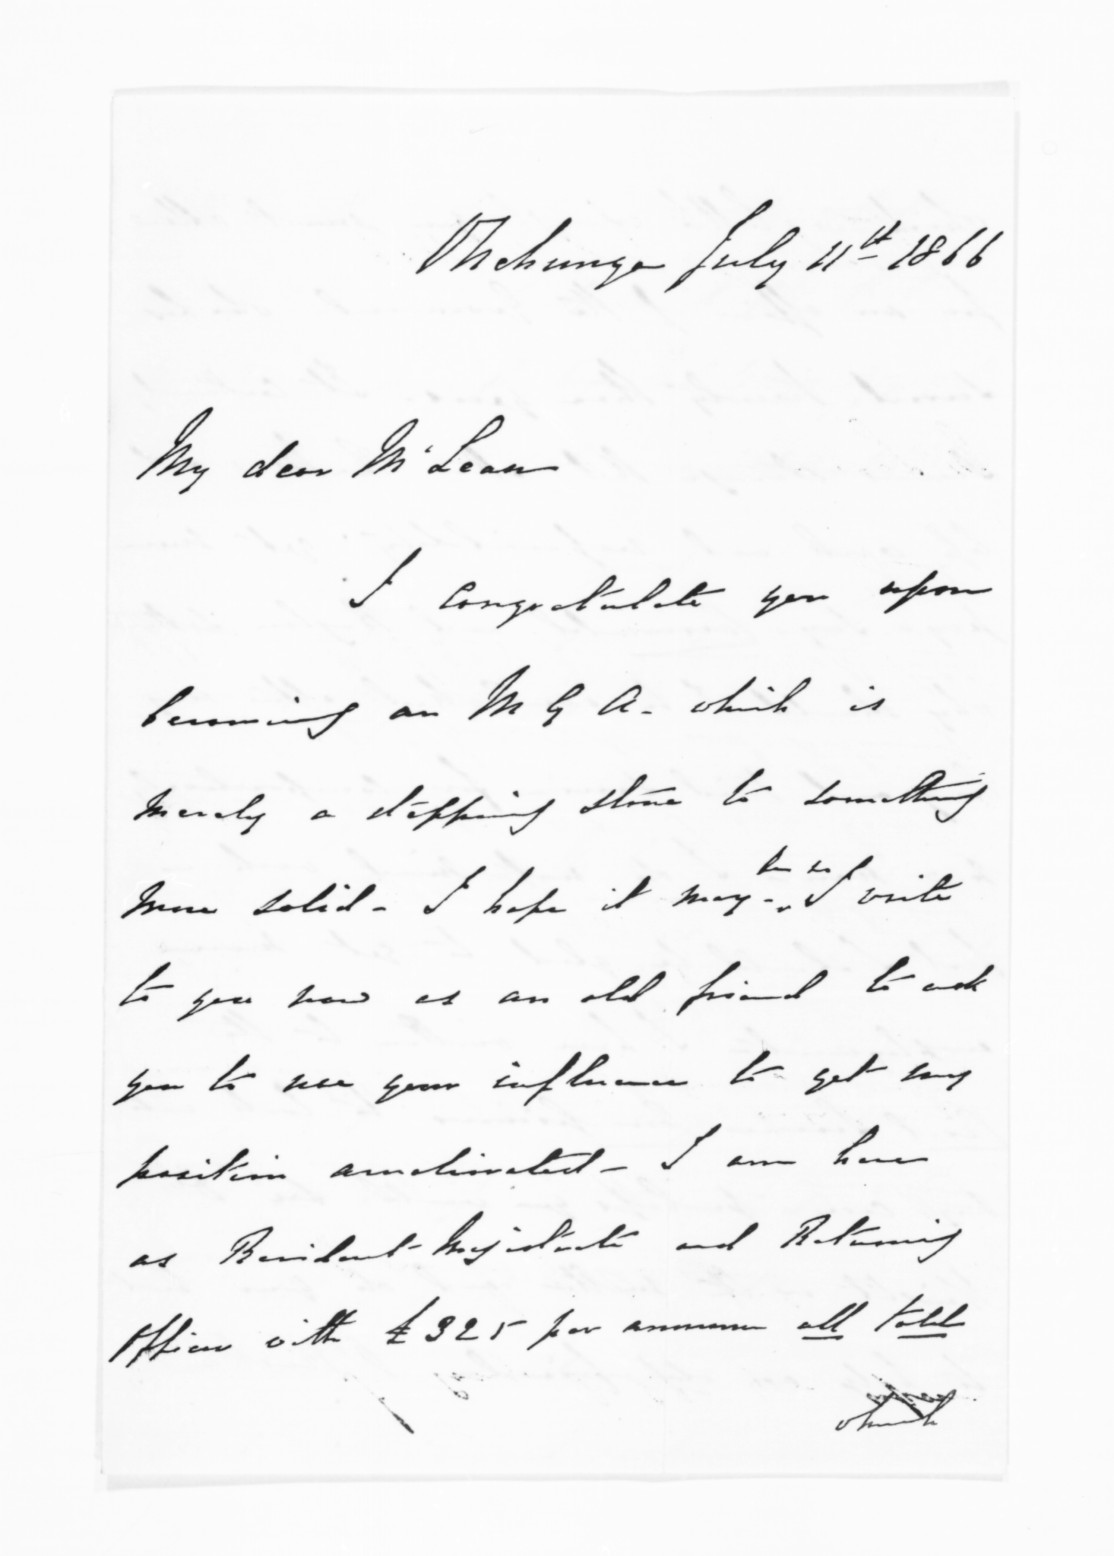 Onehunga July 11th 1866
My dear McLean
I congratulate you upon
becoming an M G A - which is
merely a stepping stone to something
more solid - I hope it may be so - I write
to you now as an old friend to ask
you to use your influence to get my
position ameliorated - I am here
as Resident Magistrate and Returning
Officer with £325 per annum all told
which